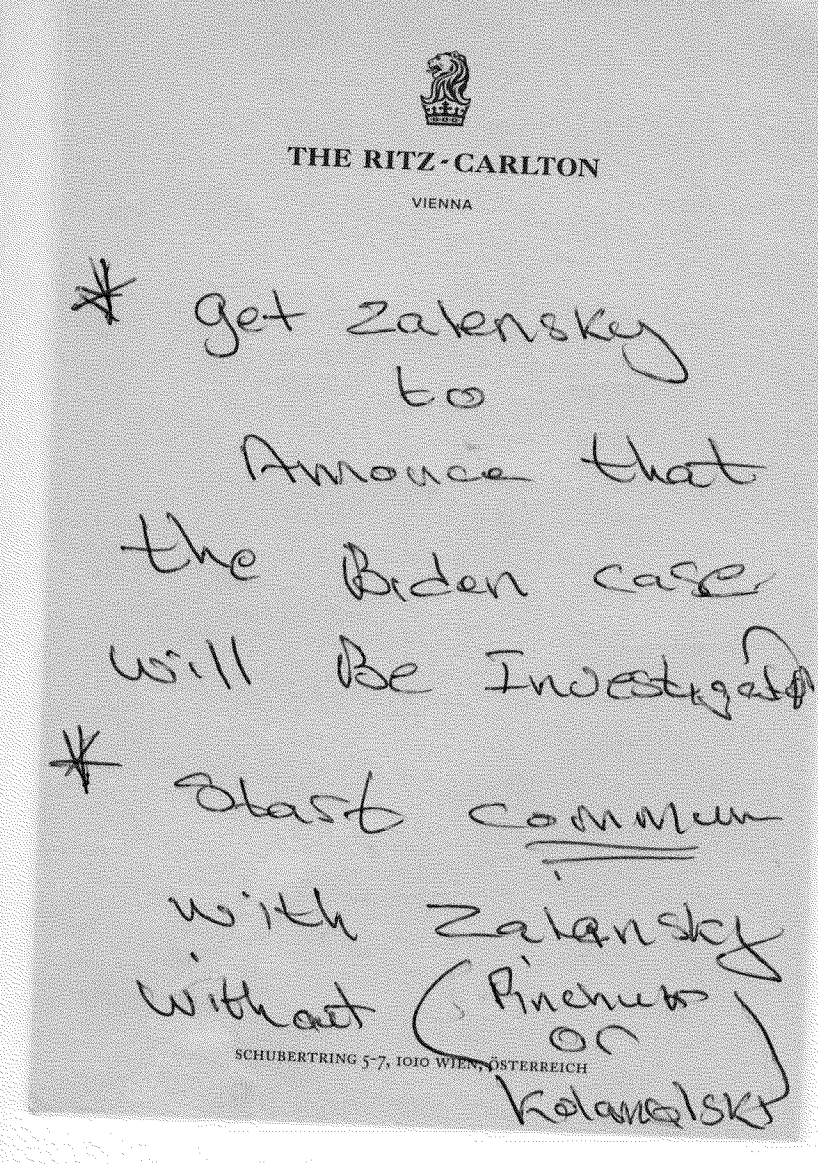 THE RITZ-CARLTON
VIENNA
* get Zalensky
to
Annouce that
the Biden case
will Be Investigated
* start commun
with Zalensky
without (Pinchuk
or
SCHUBERTRING 5-7, 1010 WIEN, ÖSTERREICH
Kolamoiski)